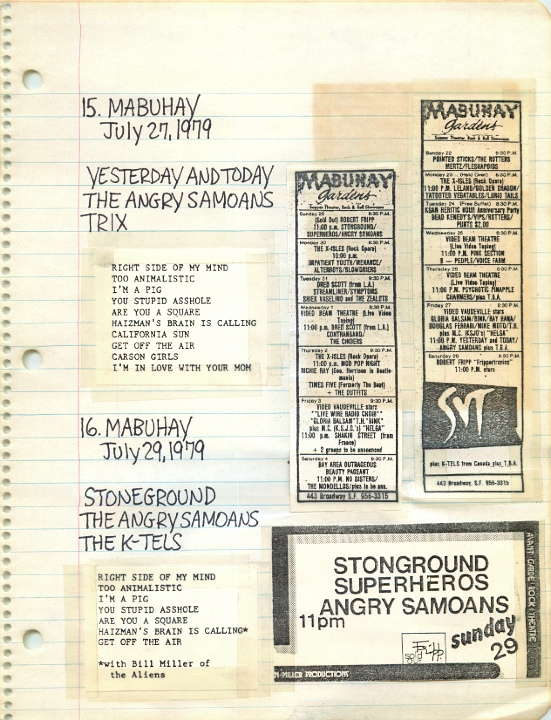 15. MABUHAY
July 27, 1979
YESTERDAY AND TODAY
THE ANGRY SAMOANS
TRIX
RIGHT SIDE OF MY MIND
TOO ANIMALISTIC
I'M A PIG
YOU STUPID ASSHOLE
ARE YOU A SQUARE
HAIZMAN'S BRAIN IS CALLING
CALIFORNIA SUN
GET OFF THE AIR
CARSON GIRLS
I'M IN LOVE WITH YOUR MOM
16. MABUHAY
July 29, 1979
STONEGROUND
THE ANGRY SAMOANS
THE K-TELS
RIGHT SIDE OF MY MIND
TOO ANIMALISTIC
I'M A PIG
YOU STUPID ASSHOLE
ARE YOU A SQUARE
HAIZMAN'S BRAIN IS CALLING*
GET OFF THE AIR
*with Bill Miller of
the Aliens
MABUHAY
Gardens
Supper Theater, Rock & Roll Showcase
Sunday 29 8:30 P.M.
(Sold Out) ROBERT FRIPP
11:00 p.m. STONGROUND/
SUPERHEROS/ANGRY SAMOANS
Monday 30 8:30 P.M.
THE X-ISLES (Rock Opera)
10:00 p.m.
IMPATIENT YOUTH/MENANCE/
ALTERBOYS/BLOWDRIERS
Tuesday 31 9:30 P.M.
DRED SCOTT (from L.A.)
STREAMLINER/SYMPTOMS
SHIEK VASELINO and THE ZEALOTS
Wednesday 1 9:30 P.M.
VIDEO BEAM THEATRE (Live Video
Taping)
11:00 p.m. DRED SCOTT (from L.A.)
CONTRABAND/
THE CHOIRS
Thursday 2 9:30 P.M.
THE X-ISLES (Rock Opera)
11:00 p.m. MOD POP NIGHT
RICHIE RAY (Geo. Harrison in Beatle-
mania)
TIMES FIVE (Formerly The Beat)
+ THE OUTFITS
Friday 3 9:30 P.M.
VIDEO VAUDEVILLE stars
"LIVE WIRE RADIO CHOIR"
"GLORIA BALSAM"/"H."BINK"
plus M.C. (K.S.J.O.'s) "HELGA"
11:00 p.m. SHAKIN STREET (from
France)
+ 2 groups to be announced
Saturday 4 9:30 P.M.
BAY AREA OUTRAGEOUS
BEAUTY PAGEANT
11:00 P.M. NO SISTERS/
THE MONDELLOS/plus to be ann.
443 Broadway S.F. 956-3315
MABUHAY
Gardens
Supper Theater, Rock & Roll Showcase
Sunday 22 9:30 P.M.
POINTED STICKS/THE ROTTERS
MERTZ/FLESHAPOIDS
Monday 23 (Held Over) 8:30 P.M.
THE X-ISLES (Rock Opera)
11:00 P.M. LELAND/GOLDEN DRAGON/
TATOOED VEGATABLES/LUNG TAILS
Tuesday 24 (Free Buffet) 8:30 P.M.
KSAN HERETIC HOUR Anniversary Party
DEAD KENEDY's/VIPS/ROTTERS/
PUNTS $2.00
Wednesday 25 9:30 P.M.
VIDEO BEAM THEATRE
(Live Video Taping)
11:00 P.M. PINK SECTION
B — PEOPLE/VOICE FARM
Thursday 26 9:30 P.M.
VIDEO BEAM THEATRE
(Live Video Taping)
11:00 P.M. PSYCHOTIC PINAPPLE
/plus T.B.A.
Friday 27 9:30 P.M.
VIDEO VAUDEVILLE stars
GLORIA BALSAM/BINK/RAY HANA/
DOUGLAS FERRARI/MIKE MOTO/T.H.
plus M.C. (KSJO's) "HELGA"
11:00 P.M. YESTERDAY and TODAY/
ANGRY SAMOANS plus T.B.A.
Saturday 28 8:30 P.M.
ROBERT FRIPP "Frippertronics"
11:00 P.M. stars
SVT
plus K-TELS from Canada plus T.B.A.
443 Broadway S.F. 956-3315
STONGROUND
SUPERHEROS
ANGRY SAMOANS
11pm
Fripp
sunday
29
AVANT GARDE ROCK THEATRE
-MILLER PRODUCTIONS